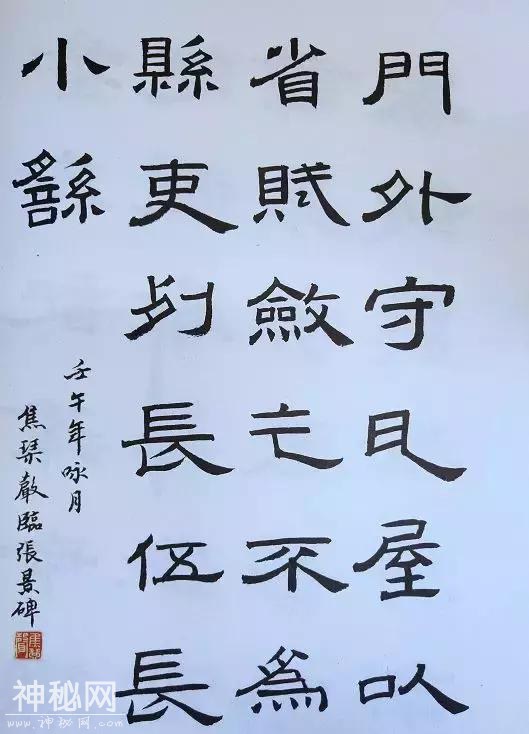 門外守瓦屋以
省賦斂乞不為
縣吏列長伍長
小繇
壬午年咏月
焦琹臨張景碑
神秘网
www.zhenbi.com